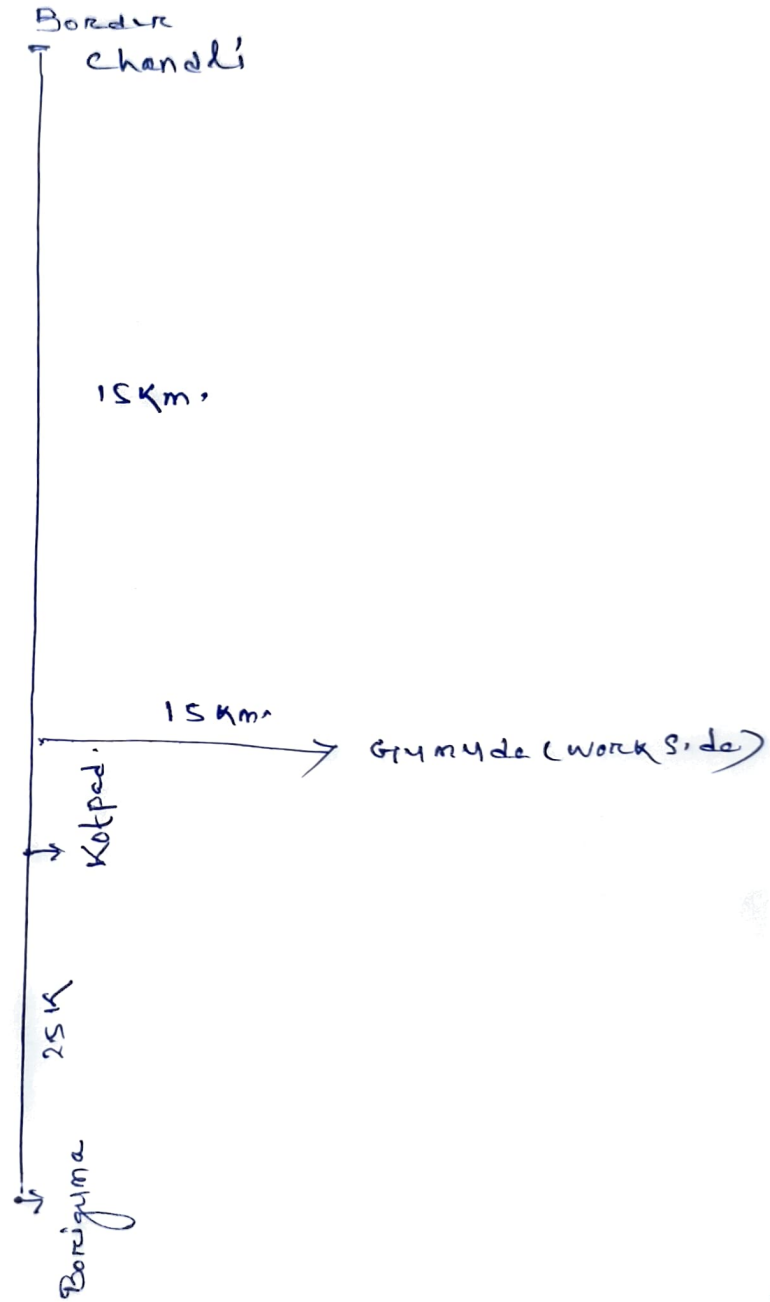 Border
Chandli
15Km.
15 Km.
Gumuda (Work Side)
Kotpad.
25K
Boriguma